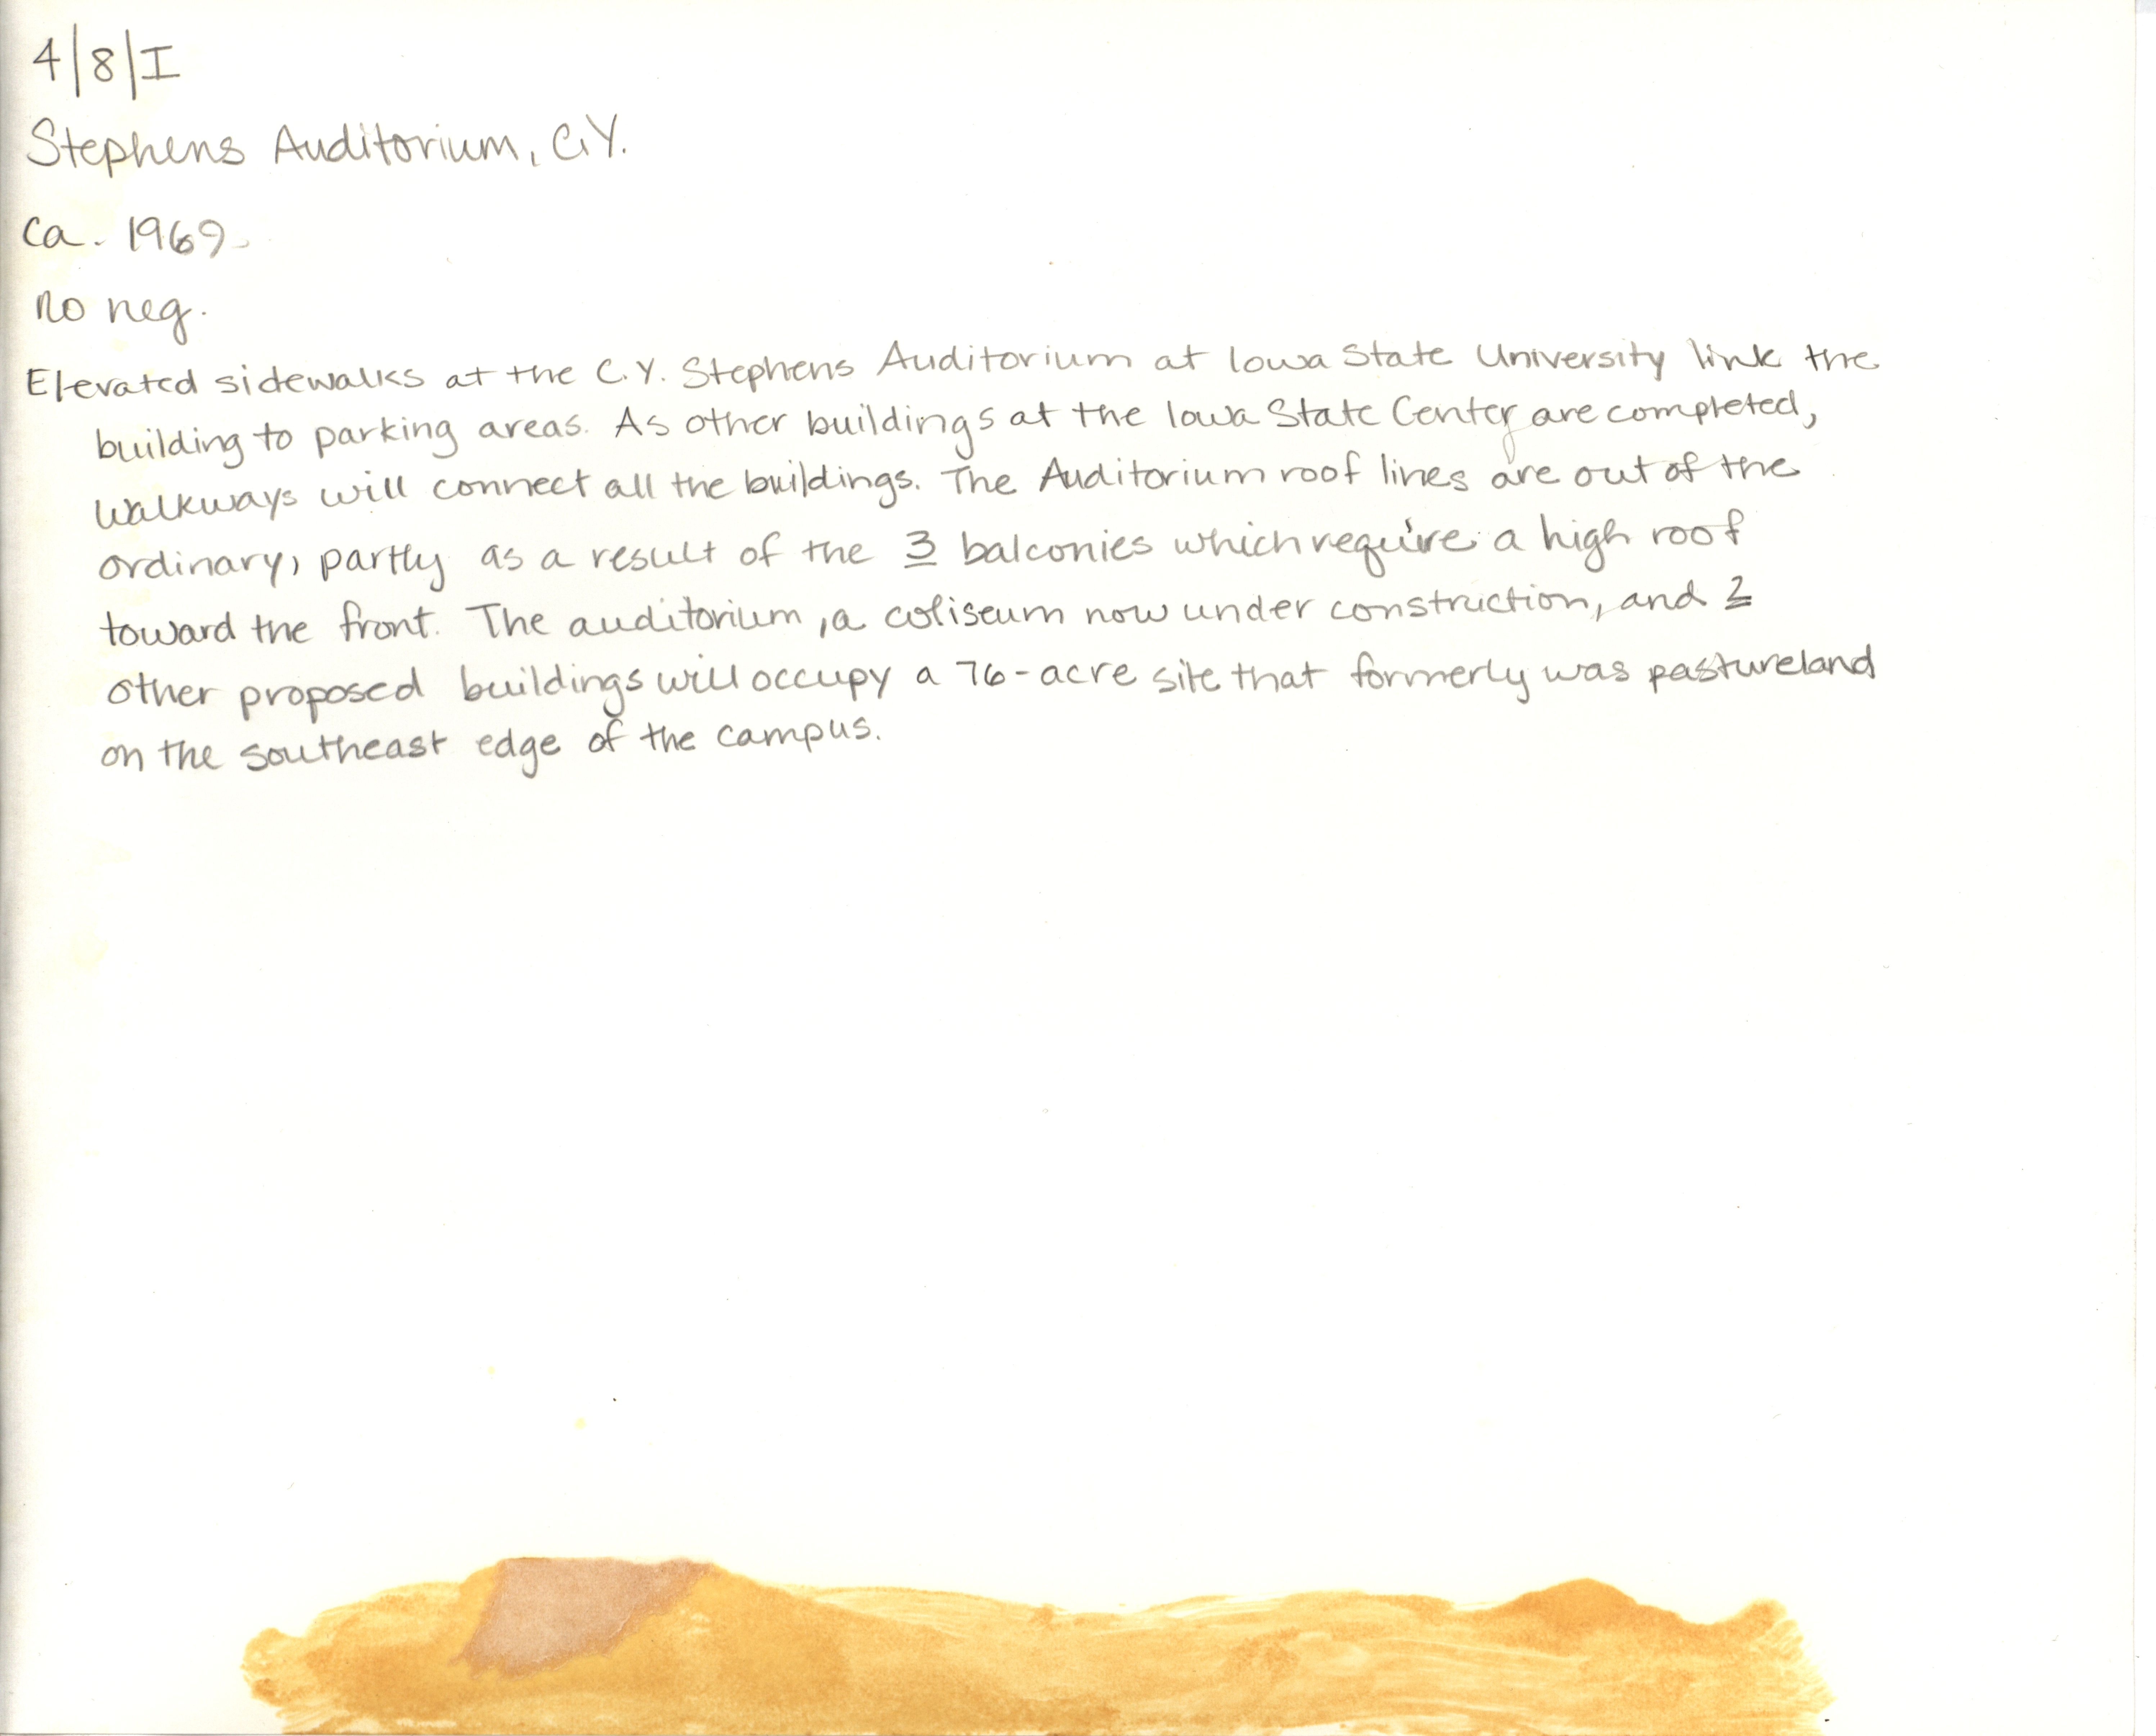 4/8/I
Stephens Auditorium, C.Y.
ca. 1969
no neg.
Elevated sidewalks at the C.Y. Stephens Auditorium at Iowa State University link the
building to parking areas. As other buildings at the Iowa State Center are completed,
walkways will connect all the buildings. The Auditorium roof lines are out of the
ordinary, partly as a result of the 3 balconies which require a high roof
toward the front. The auditorium, a coliseum now under construction, and 2
other proposed buildings will occupy a 76-acre site that formerly was pastureland
on the southeast edge of the campus.